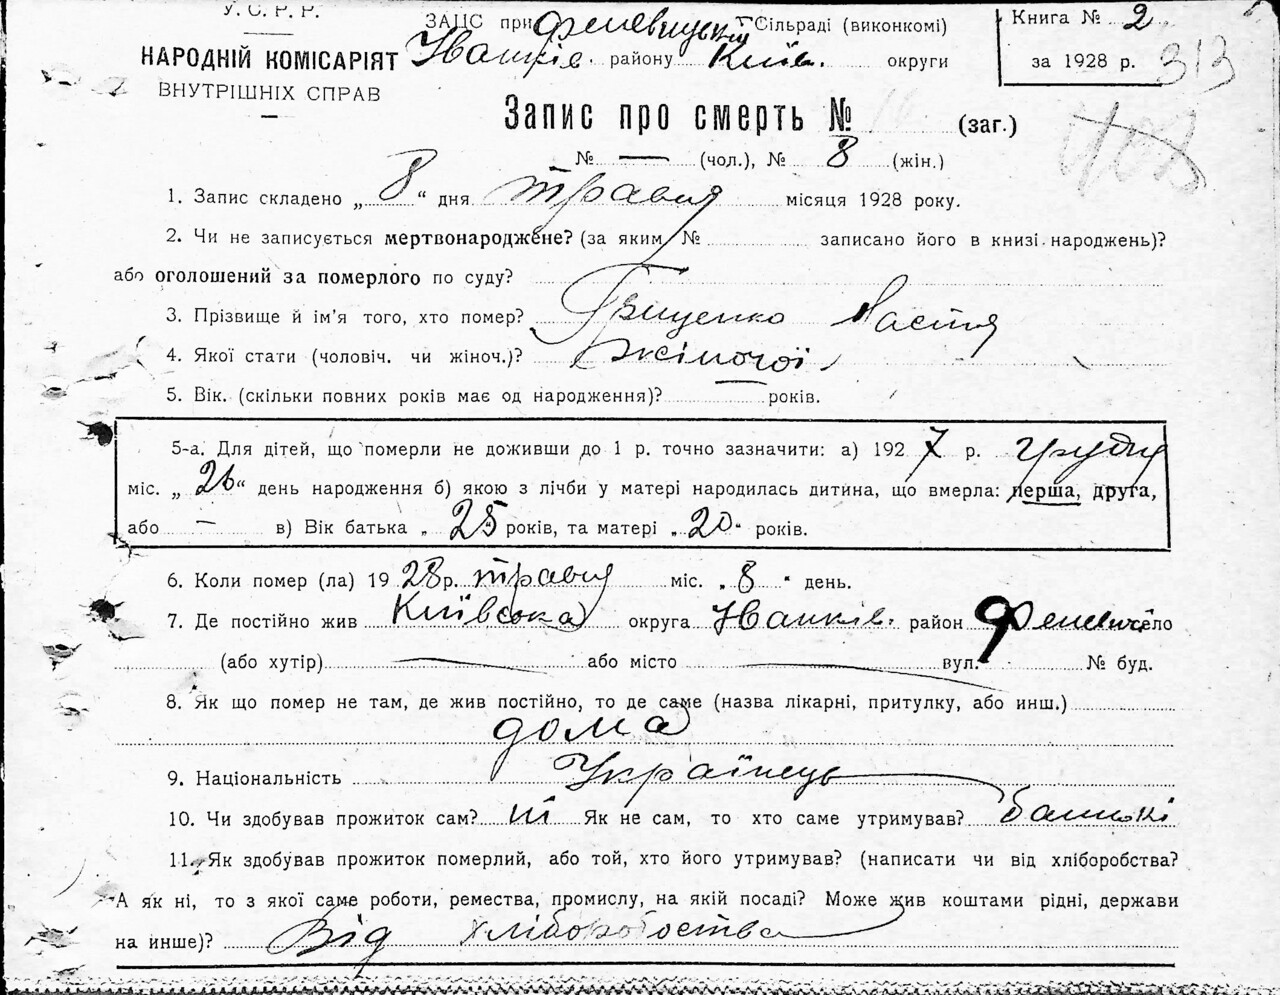 У. С. Р. Р.
НАРОДНІЙ КОМІСАРІЯТ
ВНУТРІШНІХ СПРАВ
ЗАПС при Сільраді (виконкомі)
Іванків. району Київ. округи
Книга № 2
за 1928 р.
313
Запис про смерть № (заг.)
№ — (чол.), № 8 (жін.)
1. Запис складено „ 8 “ дня травня місяця 1928 року.
2. Чи не записується мертвонароджене? (за яким № записано його в книзі народжень)?
або оголошений за померлого по суду?
3. Прізвище й ім'я того, хто помер? Грищенко Настя
4. Якої стати (чоловіч. чи жіноч.)? жіночої
5. Вік. (скільки повних років має од народження)? — років.
5-а. Для дітей, що померли не доживши до 1 р. точно зазначити: а) 1927 р. грудня
міс. „ 26 “ день народження б) якою з лічби у матері народилась дитина, що вмерла: перша, друга,
або — в) Вік батька „ 25 років, та матері „ 20 “ років.
6. Коли помер (ла) 1928 р. травня міс. „ 8 “ день.
7. Де постійно жив Київська округа Іванків. район село
(або хутір) — або місто — вул. № буд.
8. Як що помер не там, де жив постійно, то де саме (назва лікарні, притулку, або инш.)
дома
9. Національність Українець
10. Чи здобував прожиток сам? ні Як не сам, то хто саме утримував? батькі
11. Як здобував прожиток померлий, або той, хто його утримував? (написати чи від хліборобства?
А як ні, то з якої саме роботи, ремества, промислу, на якій посаді? Може жив коштами рідні, держави
на инше)? Від хліборобства